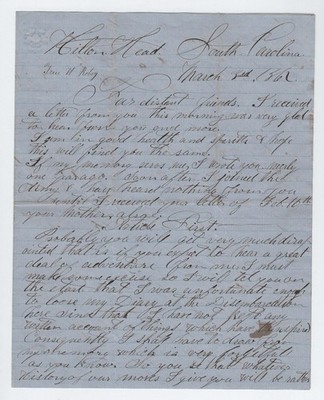 Hilton Head, South Carolina
March 2nd 1862
Dear distant friends. I received
a letter from you this morning was very glad
to hear from you once more
I am in good health and spirits & hope
this will find you the same.
If my memory serves me, I wrote you nearly
one year ago. Soon after I joined the
Army & I have heard nothing from you
untill I received your letter of Feb 16th
First
Probably you will get very much disap
ointed that is if you expect to hear a great
deal of adventure from me. I must
make an excuse. So I will tell you on
the start that I was unfortunate enough
to loose my Diary at the Disembarkation
here since that I have not kept any
writen account of things which have
Consequently I shall have to draw from
my memory which is very forgetful
as you know. So you see that whatever
history of our moves I give you will be rather